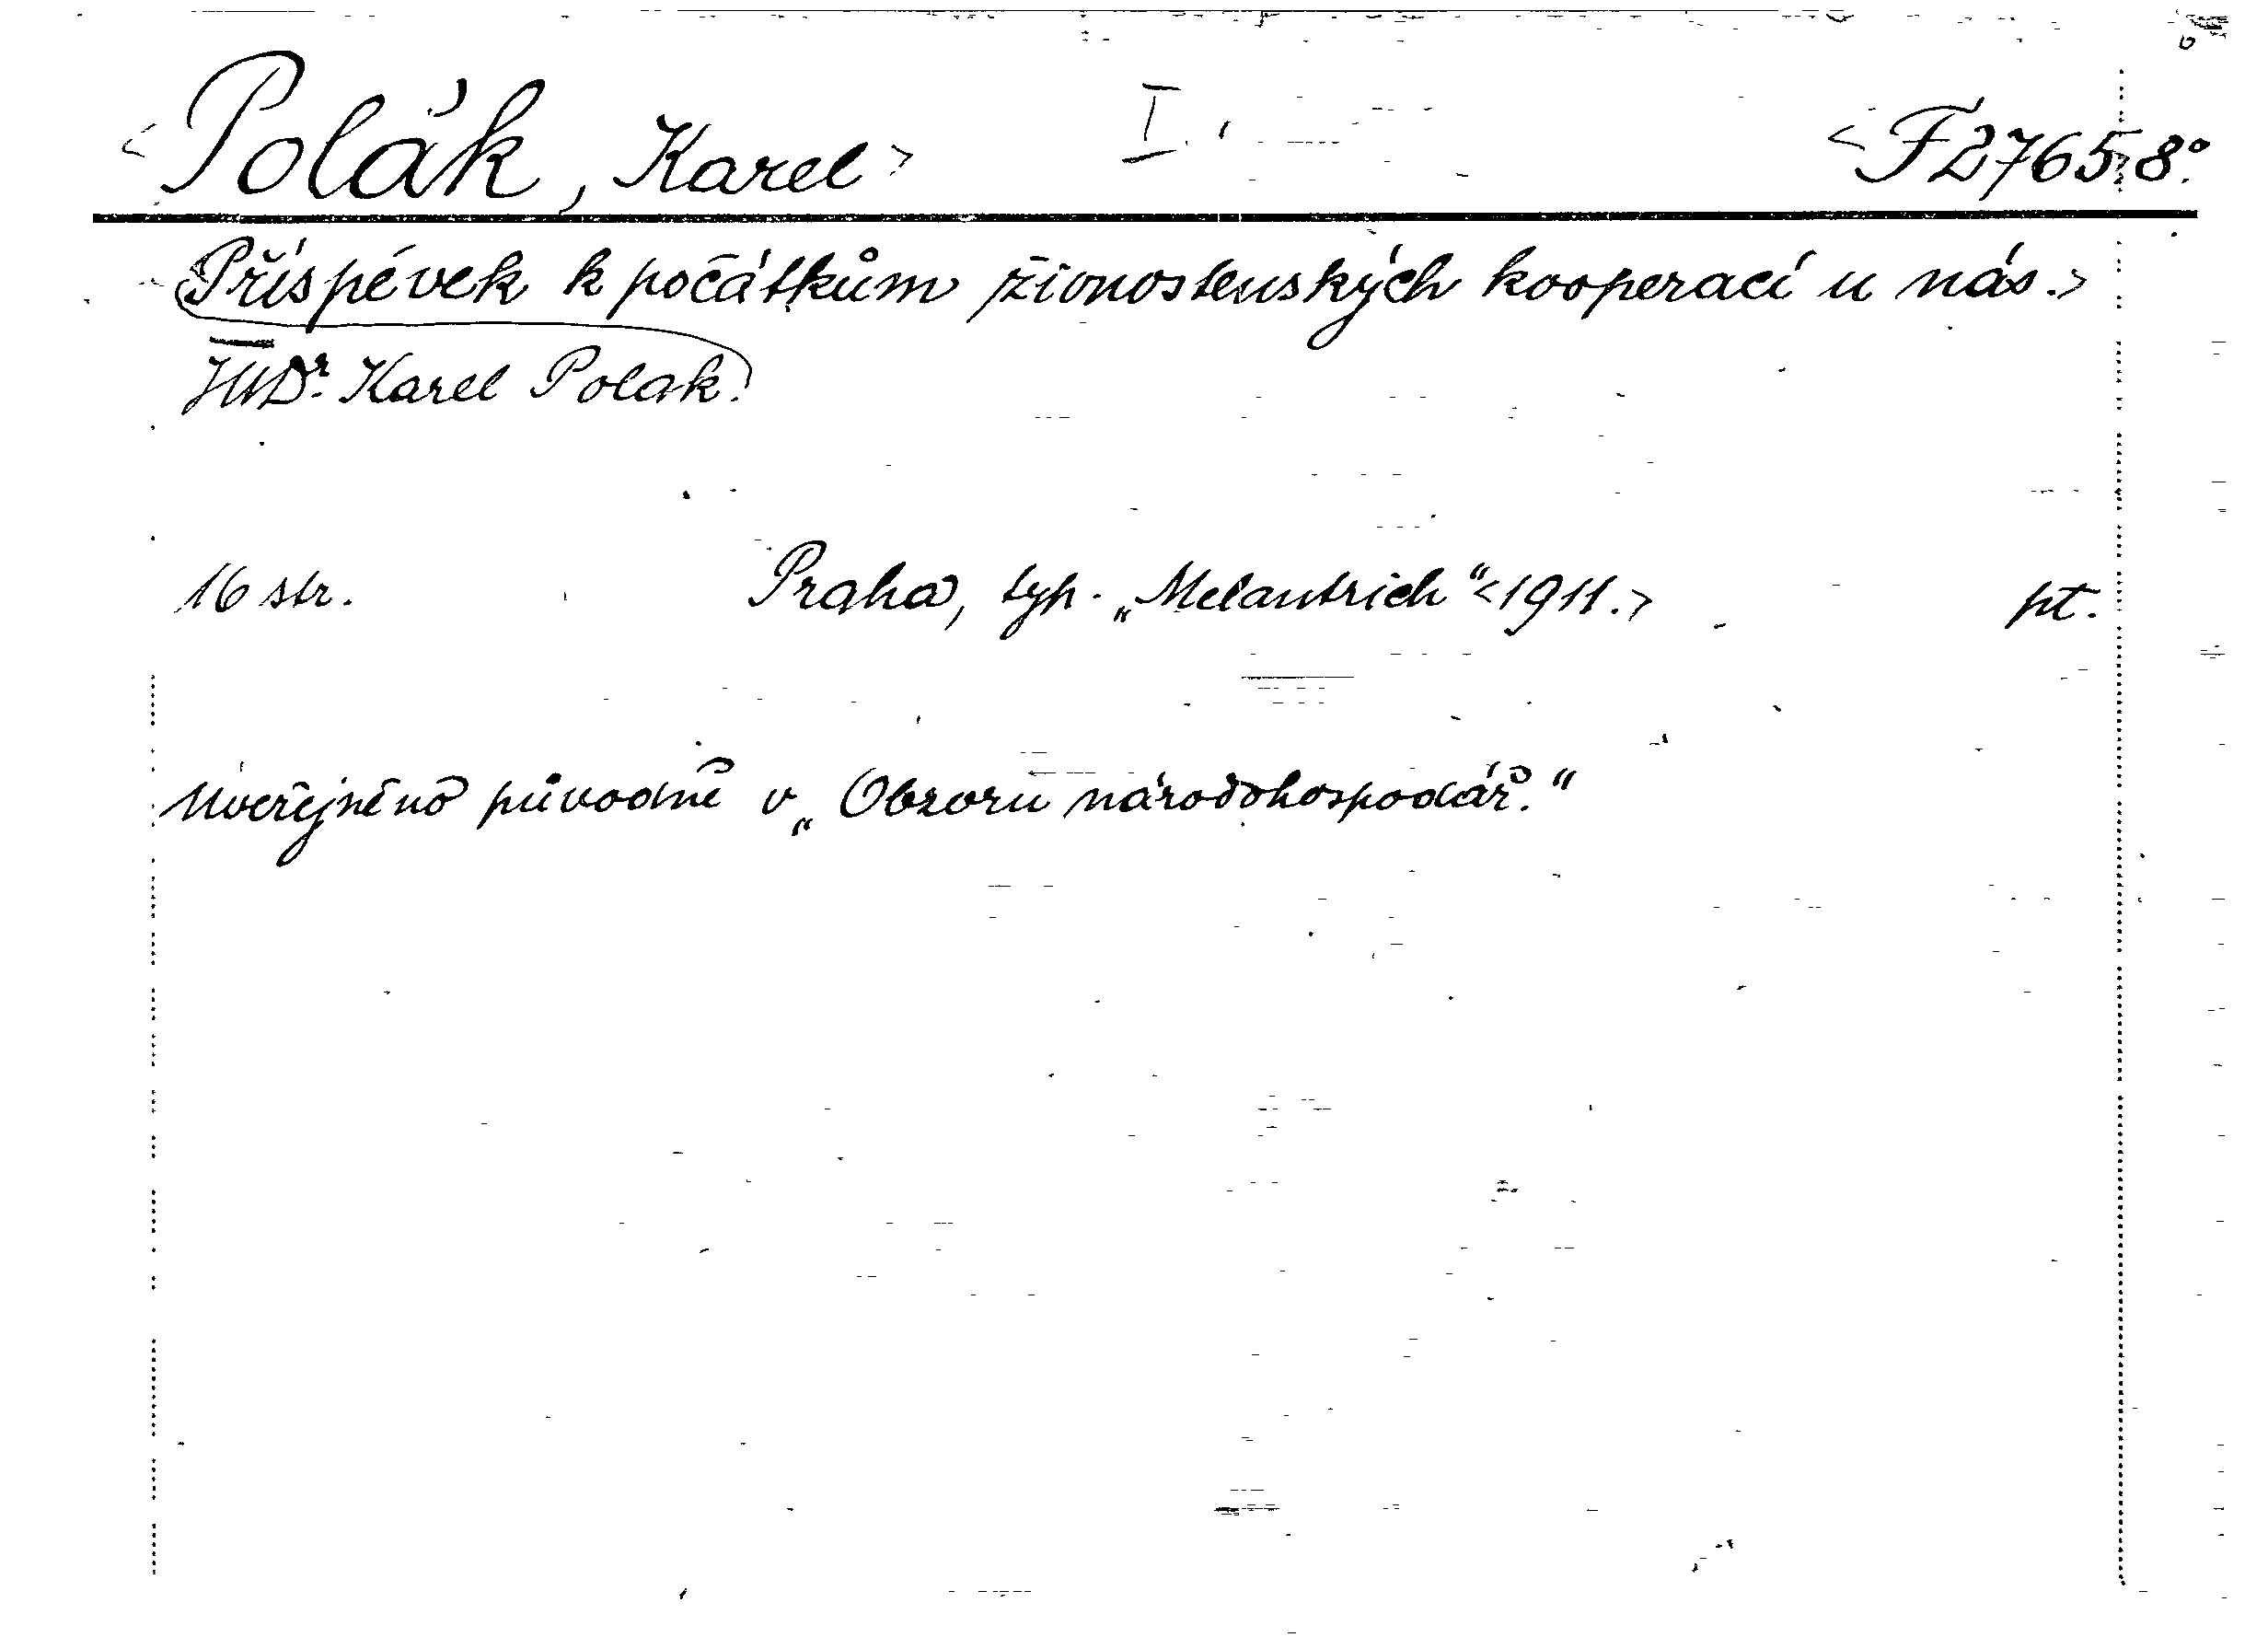 <Polák, Karel> I. <F 2765, 8°.
Příspěvek k počátkům živnostenských kooperací u nás.>
JUDr. Karel Polák.
16 str. Praha, typ. „Melantrich“ <1911.> pt.
Uveřejněno původně v „Obzoru národohospodář.“